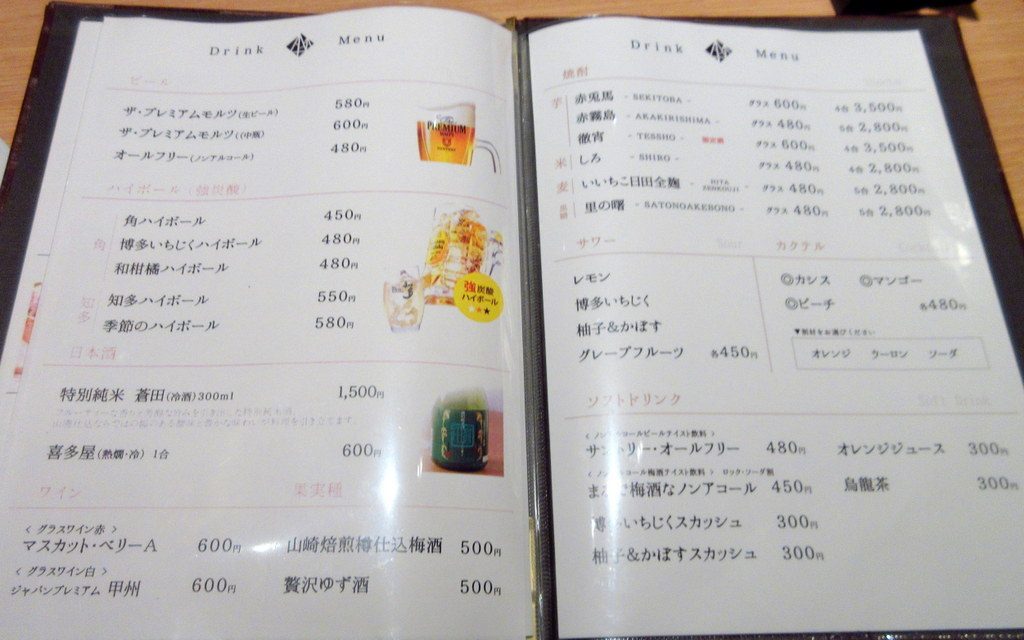 Drink Menu
ビール
ザ・プレミアムモルツ(生ビール) 580円
ザ・プレミアムモルツ(中瓶) 600円
オールフリー(ノンアルコール) 480円
PREMIUM
ハイボール(強炭酸)
角
角ハイボール 450円
博多いちじくハイボール 480円
和柑橘ハイボール 480円
知多
知多ハイボール 550円
季節のハイボール 580円
強炭酸
ハイボール
日本酒
特別純米 蒼田(冷酒)300ml 1,500円
喜多屋(熱燗・冷) 1合 600円
ワイン 果実種
〈 グラスワイン赤 〉
マスカット・ベリーA 600円 山崎焙煎樽仕込梅酒 500円
〈 グラスワイン白 〉
ジャパンプレミアム 甲州 600円 贅沢ゆず酒 500円
Drink Menu
焼酎
芋
赤兎馬 - SEKITOBA - グラス 600円 4合 3,500円
赤霧島 - AKAKIRISHIMA - グラス 480円 5合 2,800円
徹宵 - TESSHO - グラス 600円 4合 3,500円
米 しろ - SHIRO - グラス 480円 4合 2,800円
麦 いいちこ日田全麹 - HITA ZENKOUJI - グラス 480円 5合 2,800円
黒糖 里の曙 - SATONOAKEBONO - グラス 480円 5合 2,800円
サワー Sour カクテル
レモン ◎カシス ◎マンゴー
博多いちじく ◎ピーチ 各480円
柚子&かぼす ▼割材をお選びください
グレープフルーツ 各450円 オレンジ ウーロン ソーダ
ソフトドリンク Soft Drink
〈 ノンアルコールビールテイスト飲料 〉
サントリー・オールフリー 480円 オレンジジュース 300円
〈 ノンアルコール梅酒テイスト飲料 〉 ロック・ソーダ割
まるで梅酒なノンアコール 450円 烏龍茶 300円
博多いちじくスカッシュ 300円
柚子&かぼすスカッシュ 300円